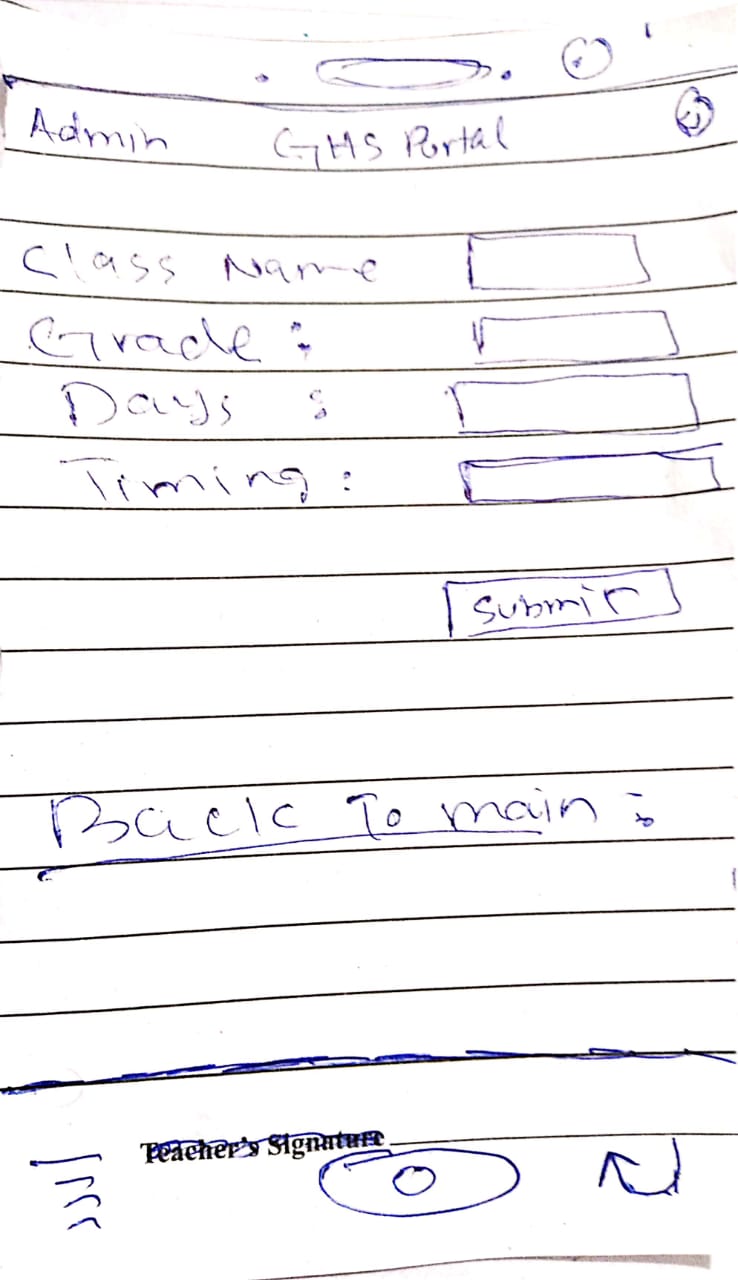 Admin GHS Portal
Class Name
Grade :
Days :
Timing :
Submit
Back To main :
Teacher's Signature